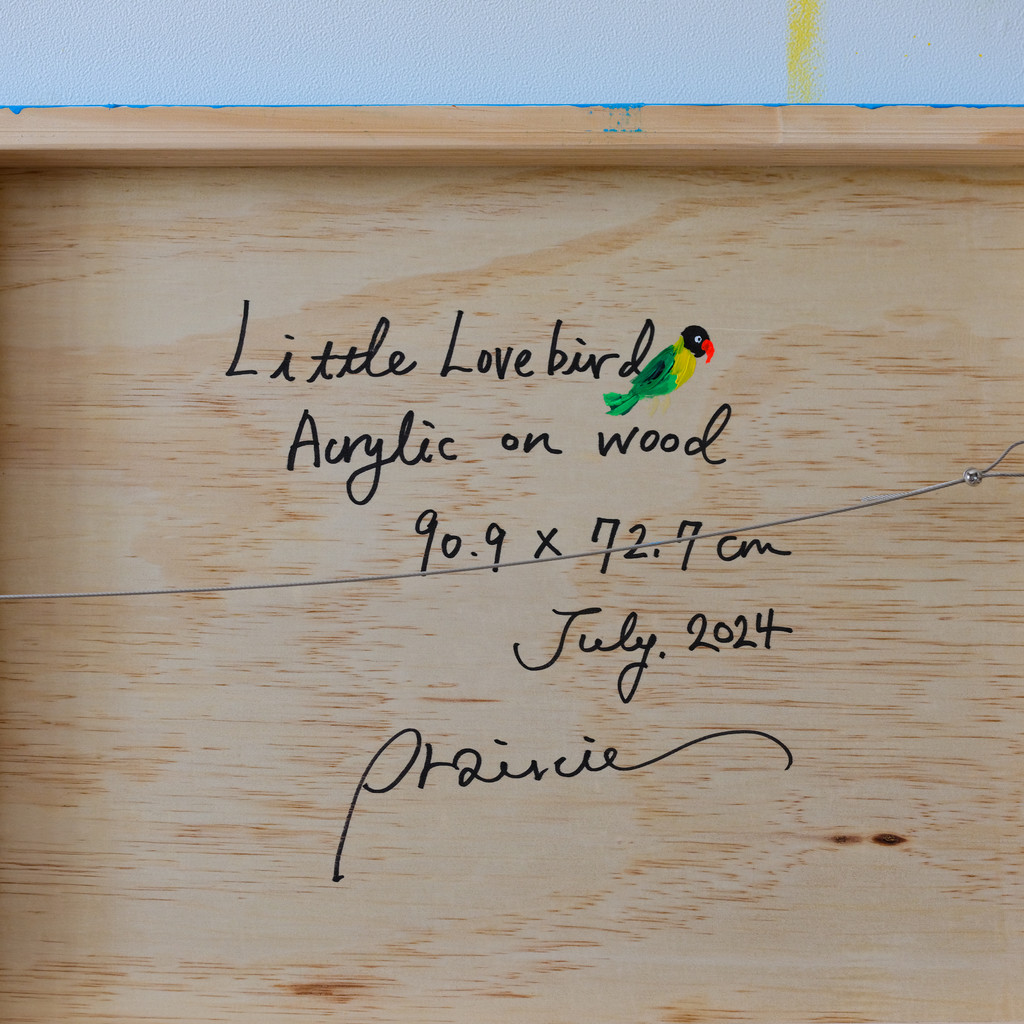 Little Lovebird
Acrylic on wood
90.9 x 72.7 cm
July. 2024